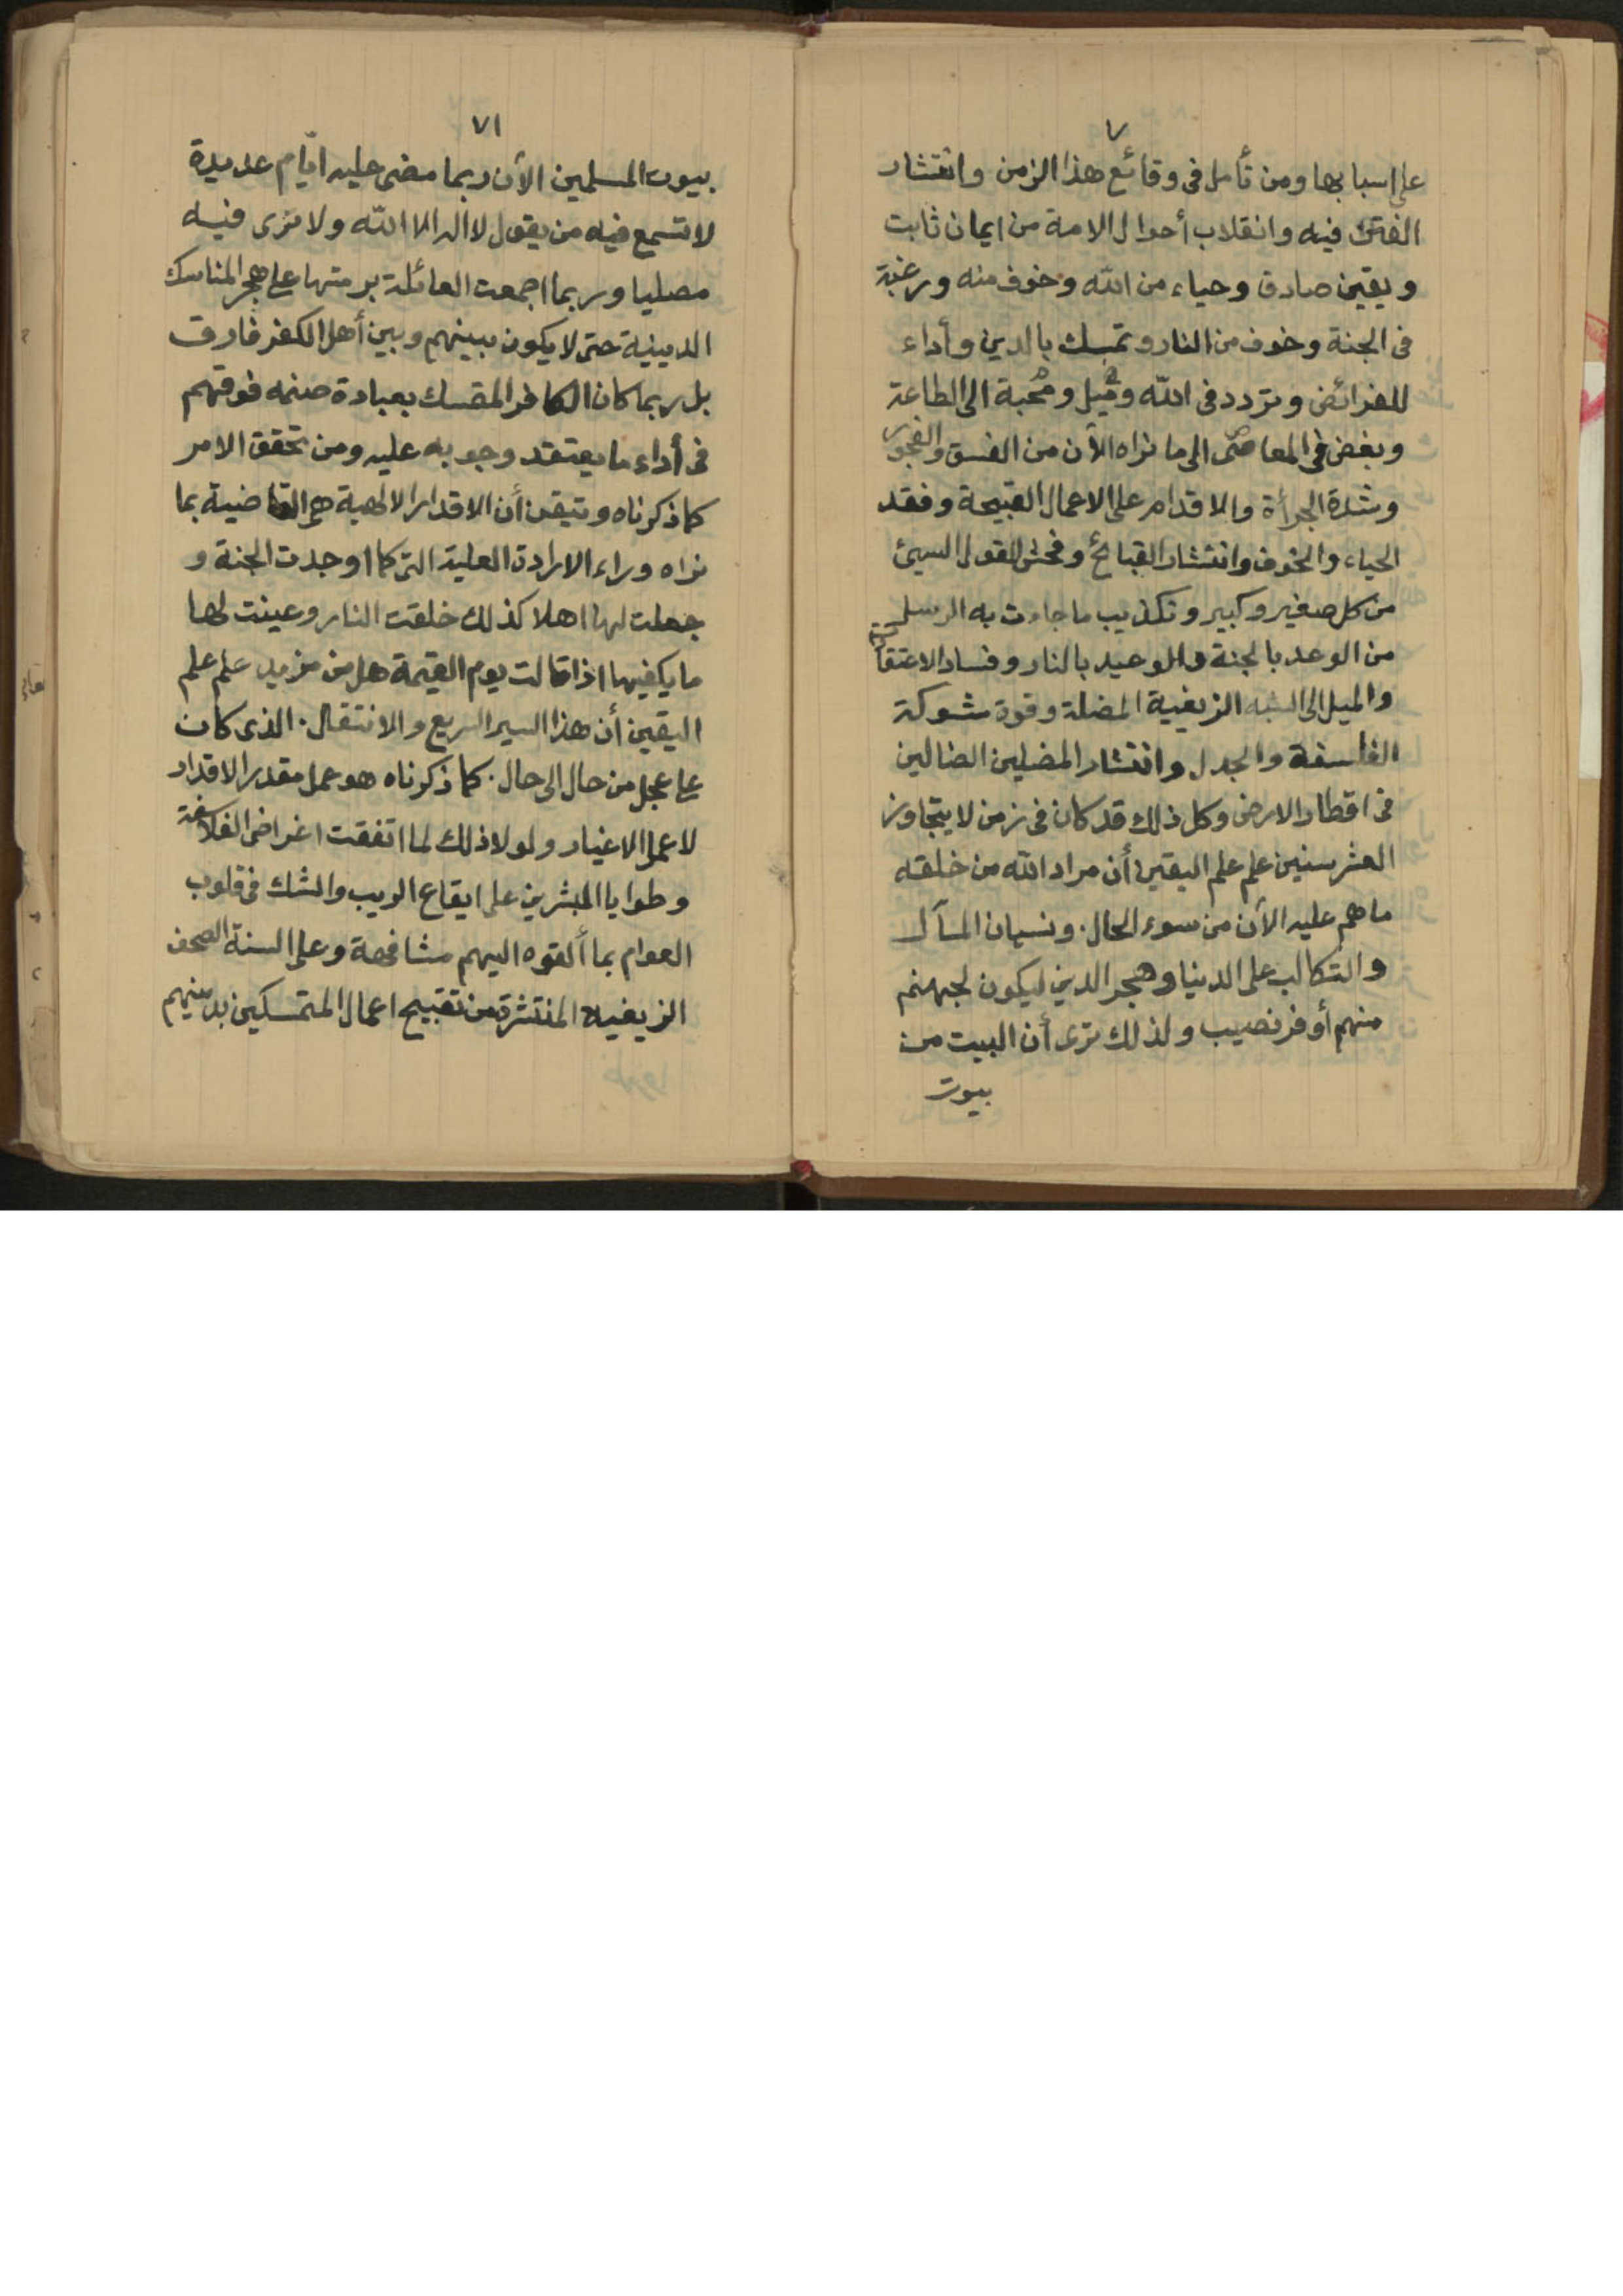 ٧
على اسبابها ومن تأمل فى وقائع هذا الزمن وانتشار
الفتن فيه وانقلاب أحوال الامة من ايمان ثابت
ويقين صادق وحياء من الله وخوف منه ورغبة
فى الجنة وخوف من النار وتمسك بالدين وأداء
للفرائض وتردد فى الله وميل ومحبة الى الطاعة
وبغض فى المعاصى الى ما نراه الآن من الفسق والفجور
وشدة الجرأة والاقدام على الاعمال القبيحة وفقد
الحياء والخوف وانتشار القبائح وفحش القول السيئ
من كل صغير وكبير وتكذيب ما جاءت به الرسل
من الوعد بالجنة والوعيد بالنار وفساد الاعتقاد
والميل الى الشبه الزيغية المضلة وقوة شوكة
الفلسفة والجدل وانتشار المضلين الضالين
فى اقطار الارض وكل ذلك قد كان فى زمن لا يتجاوز
العشر سنين علم علم اليقين أن مراد الله من خلقه
ما هم عليه الآن من سوء الحال. ونسيان المآل
والتكالب على الدنيا وهجر الدين ليكون لجهنم
منهم أوفر نصيب ولذلك ترى أن البيت من
بيوت
٧١
بيوت المسلمين الآن ربما مضى عليه ايام عديدة
لا تسمع فيه من يقول لا اله الا الله ولا ترى فيه
مصليا وربما اجمعت العائلة برمتها على هجر المناسك
الدينية حتى لا يكون بينهم وبين أهل الكفر فارق
بل ربما كان الكافر المتمسك بعبادة صنمه فوقهم
فى أداء ما يعتقد وجوبه عليه ومن تحقق الامر
كما ذكرناه وتيقن أن الاقدار الالهية هى القاضية بما
نراه وراء الارادة العلية التى كما اوجدت الجنة و
جعلت لها اهلا كذلك خلقت النار وعينت لها
ما يكفيها اذا قالت يوم القيمة هل من مزيد علم علم
اليقين أن هذا السير السريع والانتقال. الذى كان
على عجل من حال الى حال. كما ذكرناه هو عمل مقدر الاقدار
لا عمل الاغيار ولولا ذلك لما اتفقت اغراض الفلاسفة
وطوايا المبشرين على ايقاع الريب والشك فى قلوب
العوام بما ألقوه اليهم مشافهة وعلى السنة الصحف
الزيغية المنتشرة من تقبيح اعمال المتمسكين بدينهم